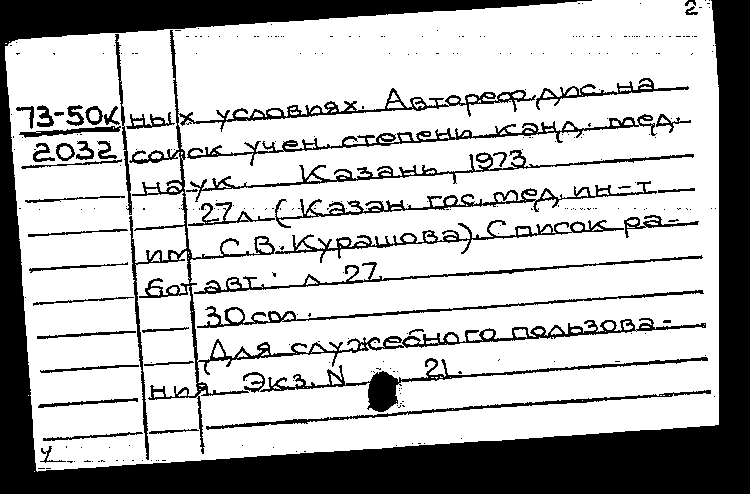 2
73-50к ных условиях. Автореф. дис. на
2032 соиск учен. степени канд. мед.
наук. Казань, 1973.
27л. (Казан. гос. мед. ин-т
им. С.В. Курашова). Список ра-
бот авт.: л. 27.
30см.
Для служебного пользова-
ния. Экз. N 21.
У